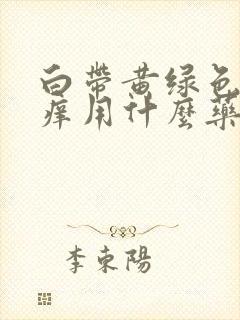 白帶黄绿色
痒用什麼藥
李東陽